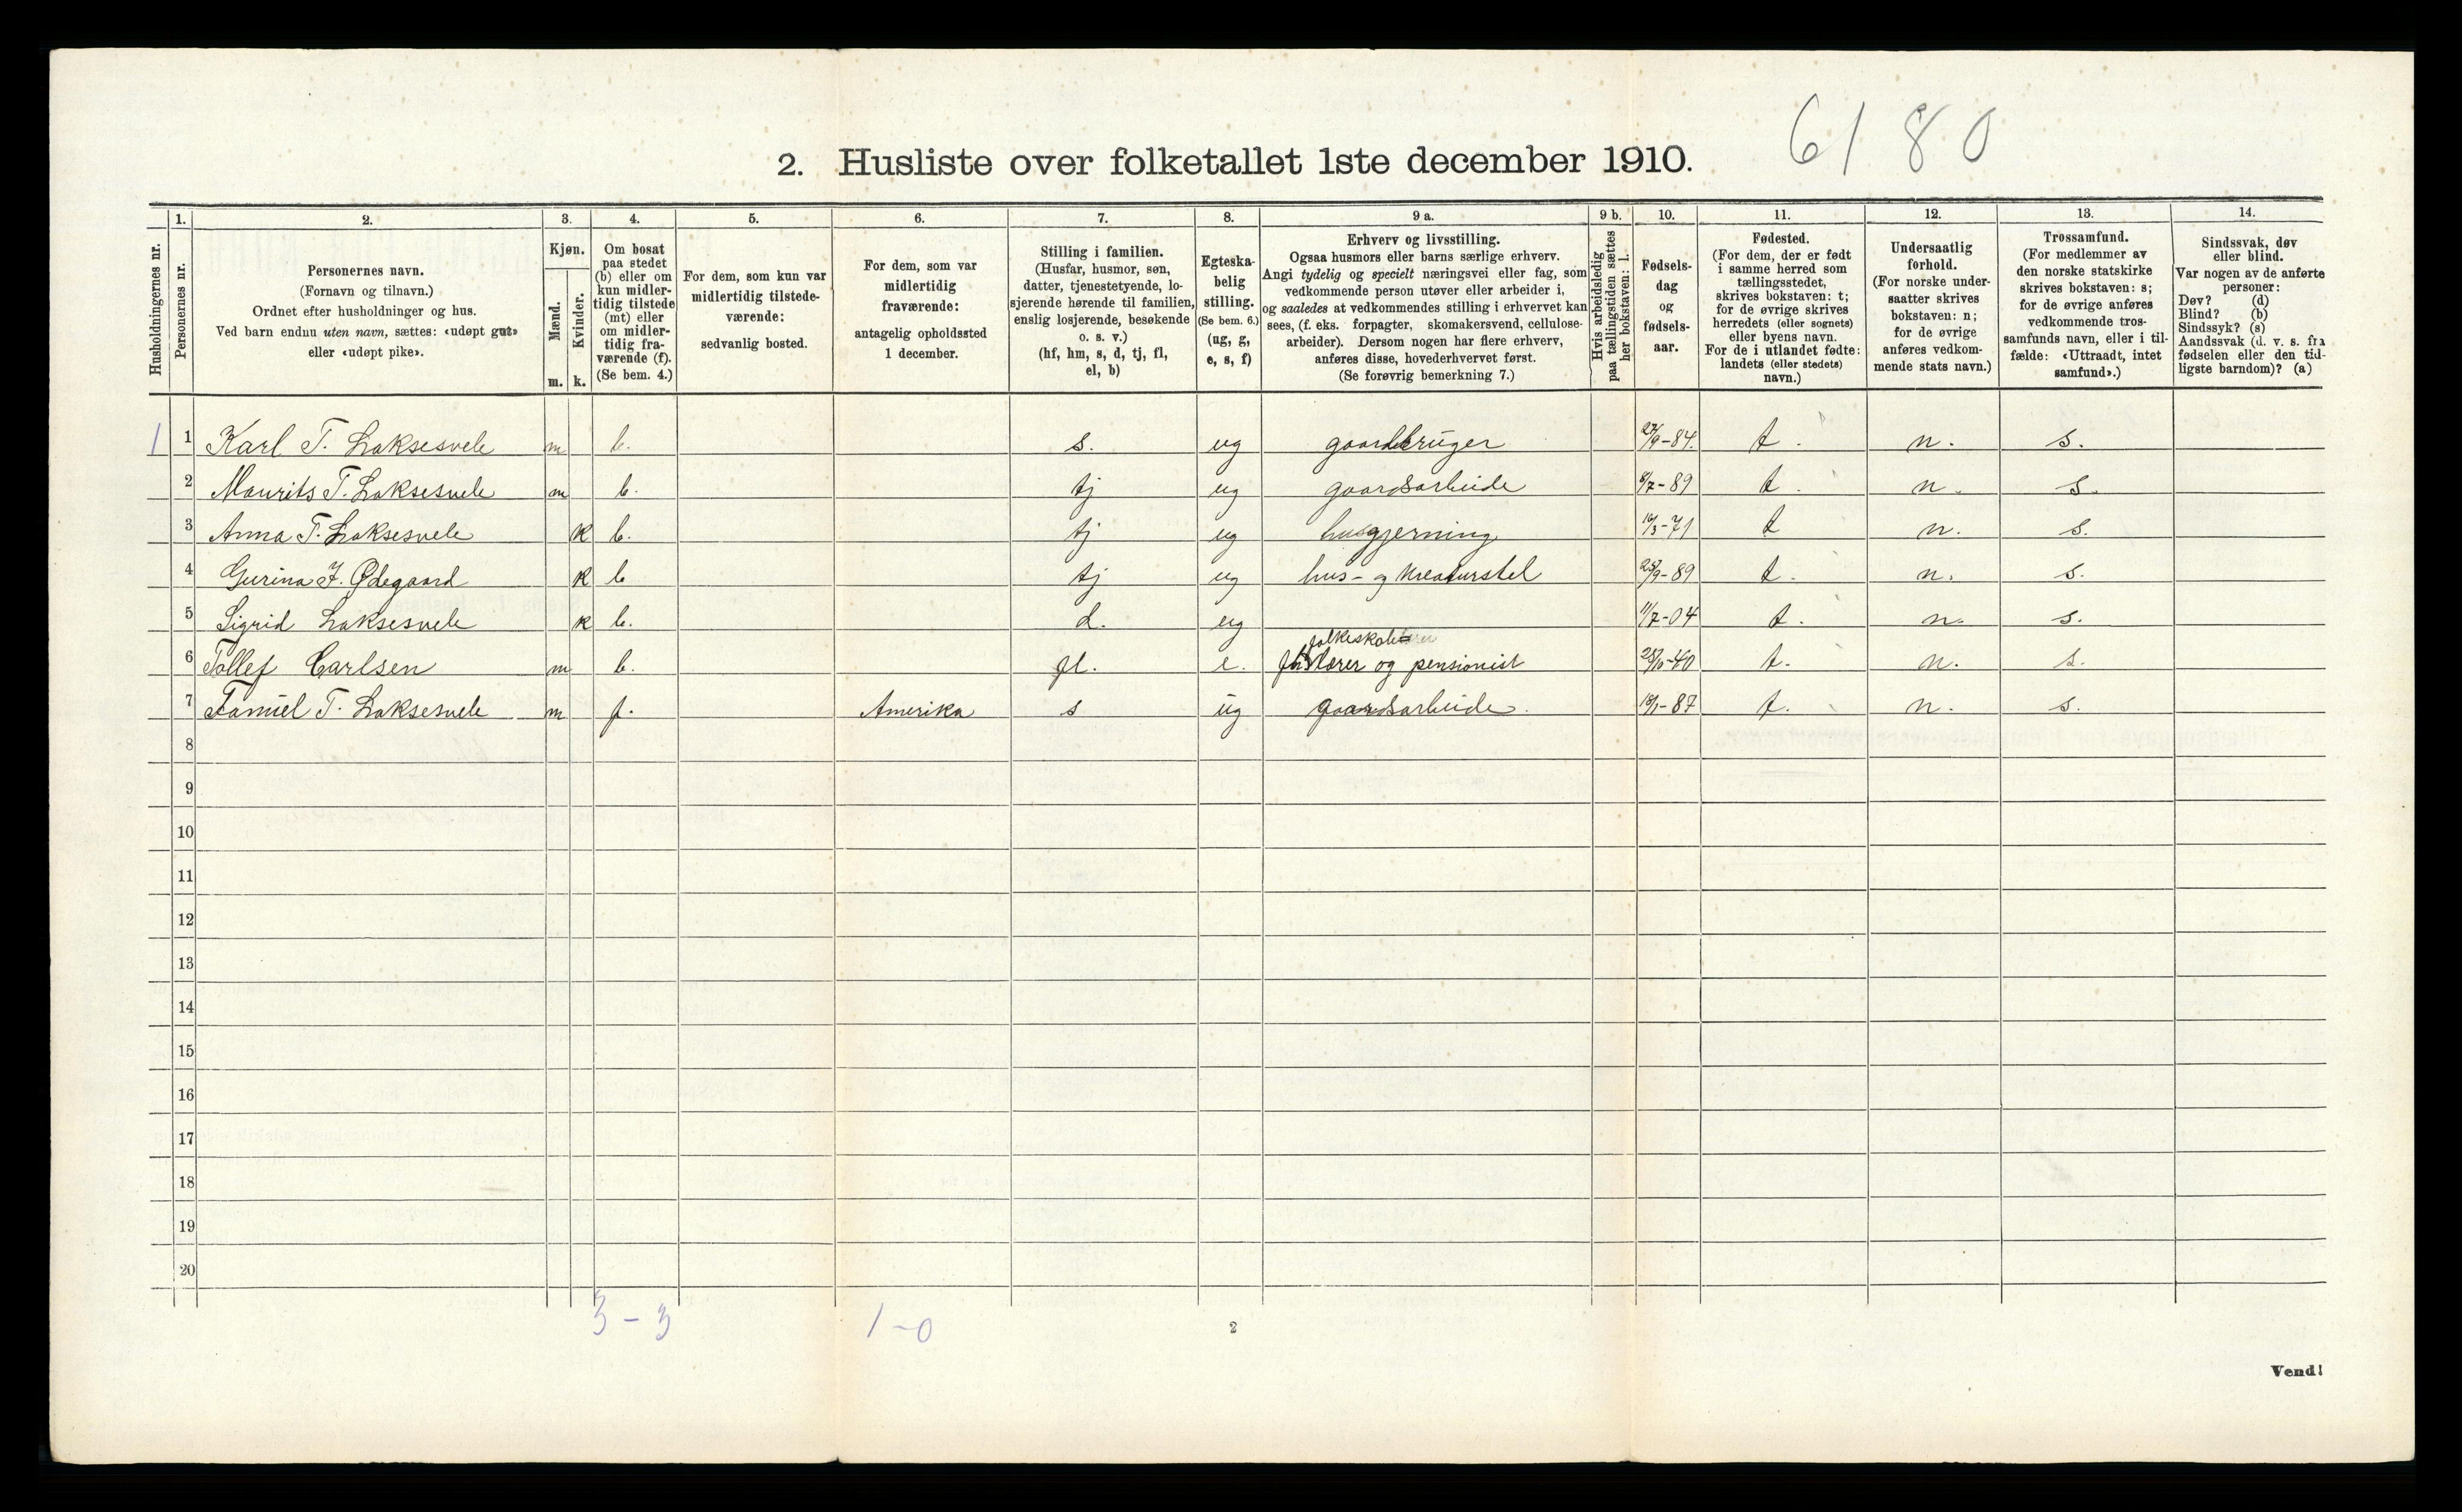 6180
2. Husliste over folketallet 1ste december 1910.
Husholdningernes nr.
1. Personernes nr.
2. Personernes navn.
(Fornavn og tilnavn.)
Ordnet efter husholdninger og hus.
Ved barn endnu uten navn, sættes: «udøpt gut»
eller «udøpt pike».
3. Kjøn.
Mænd. m.
Kvinder. k.
4. Om bosat
paa stedet
(b) eller om
kun midler-
tidig tilstede
(mt) eller
om midler-
tidig fra-
værende (f).
(Se bem. 4.)
5. For dem, som kun var
midlertidig tilstede-
værende:
sedvanlig bosted.
6. For dem, som var
midlertidig
fraværende:
antagelig opholdssted
1 december.
7. Stilling i familien.
(Husfar, husmor, søn,
datter, tjenestetyende, lo-
sjerende hørende til familien,
enslig losjerende, besøkende
o. s. v.)
(hf, hm, s, d, tj, fl,
el, b)
8. Egteska-
belig
stilling.
(Se bem. 6.)
(ug, g,
e, s, f)
9 a. Erhverv og livsstilling.
Ogsaa husmors eller barns særlige erhverv.
Angi tydelig og specielt næringsvei eller fag, som
vedkommende person utøver eller arbeider i,
og saaledes at vedkommendes stilling i erhvervet kan
sees, (f. eks. forpagter, skomakersvend, cellulose-
arbeider). Dersom nogen har flere erhverv,
anføres disse, hovederhvervet først.
(Se forøvrig bemerkning 7.)
9 b. Hvis arbeidsledig
paa tællingstiden sættes
her bokstaven: l.
10. Fødsels-
dag
og
fødsels-
aar.
11. Fødested.
(For dem, der er født
i samme herred som
tællingsstedet,
skrives bokstaven: t;
for de øvrige skrives
herredets (eller sognets)
eller byens navn.
For de i utlandet fødte:
landets (eller stedets)
navn.)
12. Undersaatlig
forhold.
(For norske under-
saatter skrives
bokstaven: n;
for de øvrige
anføres vedkom-
mende stats navn.)
13. Trossamfund.
(For medlemmer av
den norske statskirke
skrives bokstaven: s;
for de øvrige anføres
vedkommende tros-
samfunds navn, eller i til-
fælde: «Uttraadt, intet
samfund».)
14. Sindssvak, døv
eller blind.
Var nogen av de anførte
personer:
Døv? (d)
Blind? (b)
Sindssyk? (s)
Aandssvak (d. v. s. fra
fødselen eller den tid-
ligste barndom)? (a)
1 1 Karl T. Laksesvele m b. s. ug gaardbruger 27/9-84. t. n. s.
2 Maurits T. Laksesvele m b. tj ug gaardsarbeide 8/7-89 t. n. s.
3 Anna T. Laksesvele k b. tj ug husgjerning 16/3-71 t n. s.
4 Gurina J. Ødegaard k b tj ug hus- og kreaturstel 28/9-89 t. n. s.
5 Sigrid Laksesvele k b. d. ug 11/7-04 t. n. s.
folkeskole
6 Tollef Carlsen m b. fl. e. lærer og pensionist -40 t. n. s.
7 Tamuel T. Laksesvele m f. Amerika s ug gaardsarbeide. 18/1-87 t. n. s.
8
9
10
11
12
13
14
15
16
17
18
19
20
3-3 1-0
2
Vend!